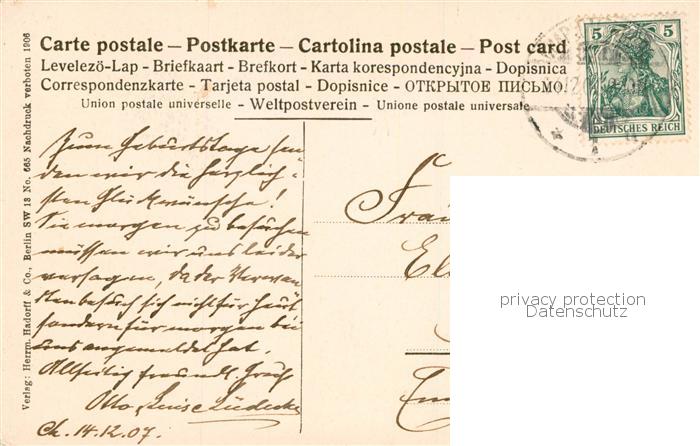 Carte postale – Postkarte – Cartolina postale – Post card
Levelezö-Lap - Briefkaart - Brefkort - Karta korespondencyjna - Dopisnica
Correspondenzkarte - Tarjeta postal - Dopisnice - ОТКРЫТОЕ ПИСЬМО.
Union postale universelle - Weltpostverein - Unione postale universale
5 5
DEUTSCHES REICH
Zum Geburtstage sen
den wir die herzlich-
sten Glückwünsche!
Sie morgen zu besuchen
müssen wir uns leider
versagen, da der Verwan
tenbesuch sich nicht für heut
sondern für morgen bei
uns angemeldet hat.
Allseitig freundl. Gruß
Otto & Luise Lüdecke
Ch. 14.12.07.
Frau
El
privacy protection
Datenschutz
Verlag: Herrm. Hadorff & Co., Berlin SW 13 No. 665 Nachdruck verboten 1906